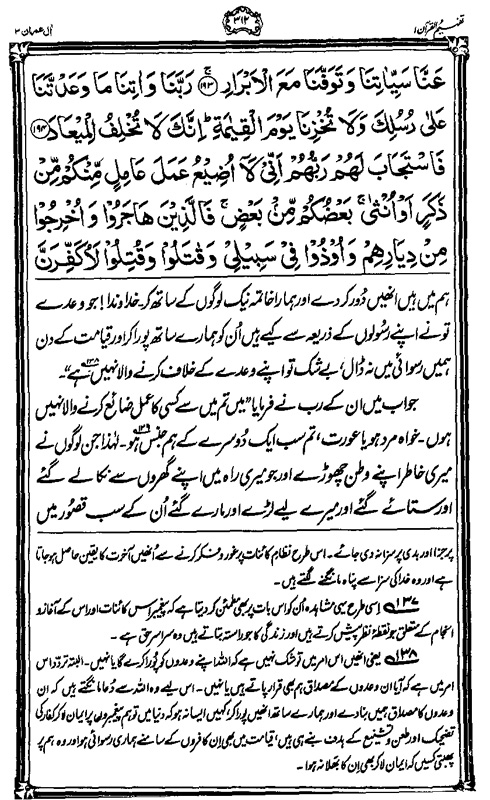 تفہیم القرآن ۱
۳۱۲
اٰل عمران ۳
عَنَّا سَيِّاٰتِنَا وَتَوَفَّنَا مَعَ الْاَبْرَارِ ۚ﴿۱۹۳﴾ رَبَّنَا وَاٰتِنَا مَا وَعَدْتَّنَا
عَلٰى رُسُلِكَ وَلَا تُخْزِنَا يَوْمَ الْقِيٰمَةِ ؕ اِنَّكَ لَا تُخْلِفُ الْمِيْعَادَ ﴿۱۹۴﴾
فَاسْتَجَابَ لَهُمْ رَبُّهُمْ اَنِّيْ لَاۤ اُضِيْعُ عَمَلَ عَامِلٍ مِّنْكُمْ مِّنْ
ذَكَرٍ اَوْ اُنْثٰى ۚ بَعْضُكُمْ مِّنْۢ بَعْضٍ ۚ فَالَّذِيْنَ هَاجَرُوْا وَاُخْرِجُوْا
مِنْ دِيَارِهِمْ وَاُوْذُوْا فِيْ سَبِيْلِيْ وَقٰتَلُوْا وَقُتِلُوْا لَاُكَفِّرَنَّ
ہم میں ہیں انھیں دُور کر دے اور ہمارا خاتمہ نیک لوگوں کے ساتھ کر۔ خداوندا! جو وعدے
تو نے اپنے رسُولوں کے ذریعہ سے کیے ہیں اُن کو ہمارے ساتھ پورا کر اور قیامت کے دن
ہمیں رسوائی میں نہ ڈال، بے شک تو اپنے وعدے کے خلاف کرنے والا نہیں ہے“۔۱۳۸
جواب میں ان کے رب نے فرمایا ”میں تم میں سے کسی کا عمل ضائع کرنے والا نہیں
ہوں۔ خواہ مرد ہو یا عورت، تم سب ایک دُوسرے کے ہم جنس ہو۔۱۳۹ لہٰذا جن لوگوں نے
میری خاطر اپنے وطن چھوڑے اور جو میری راہ میں اپنے گھروں سے نکالے گئے
اور ستائے گئے اور میرے لیے لڑے اور مارے گئے اُن کے سب قصُور میں
پر جزا اور بدی پر سزا نہ دی جائے۔ اس طرح نظامِ کائنات پر غور و فکر کرنے سے اُنھیں آخرت کا یقین حاصل ہو جاتا
ہے اور وہ خدا کی سزا سے پناہ مانگنے لگتے ہیں۔
۱۳۷ اِسی طرح یہی مشاہدہ اُن کو اس بات پر بھی مطمئن کر دیتا ہے کہ پیغمبر اس کائنات اور اس کے آغاز و
انجام کے متعلق جو نقطۂ نظر پیش کرتے ہیں اور زندگی کا جو راستہ بتاتے ہیں وہ سراسر حق ہے۔
۱۳۸ یعنی انھیں اس امر میں تو شک نہیں ہے کہ اللہ اپنے وعدوں کو پُورا کرے گا یا نہیں۔ البتہ تردّد اس
امر میں ہے کہ آیا ان وعدوں کے مصداق ہم بھی قرار پاتے ہیں یا نہیں۔ اس لیے وہ اللہ سے دُعا مانگتے ہیں کہ ان
وعدوں کا مصداق ہمیں بنا دے اور ہمارے ساتھ انھیں پُورا کر، کہیں ایسا نہ ہو کہ دنیا میں تو ہم پیغمبروں پر ایمان لا کر کفار کی
تضحیک اور طعن و تشنیع کے ہدف بنے ہی ہیں، قیامت میں بھی اِن کافروں کے سامنے ہماری رسوائی ہو اور وہ ہم پر
پھبتی کسیں کہ ایمان لا کر بھی اِن کا بھلا نہ ہوا۔